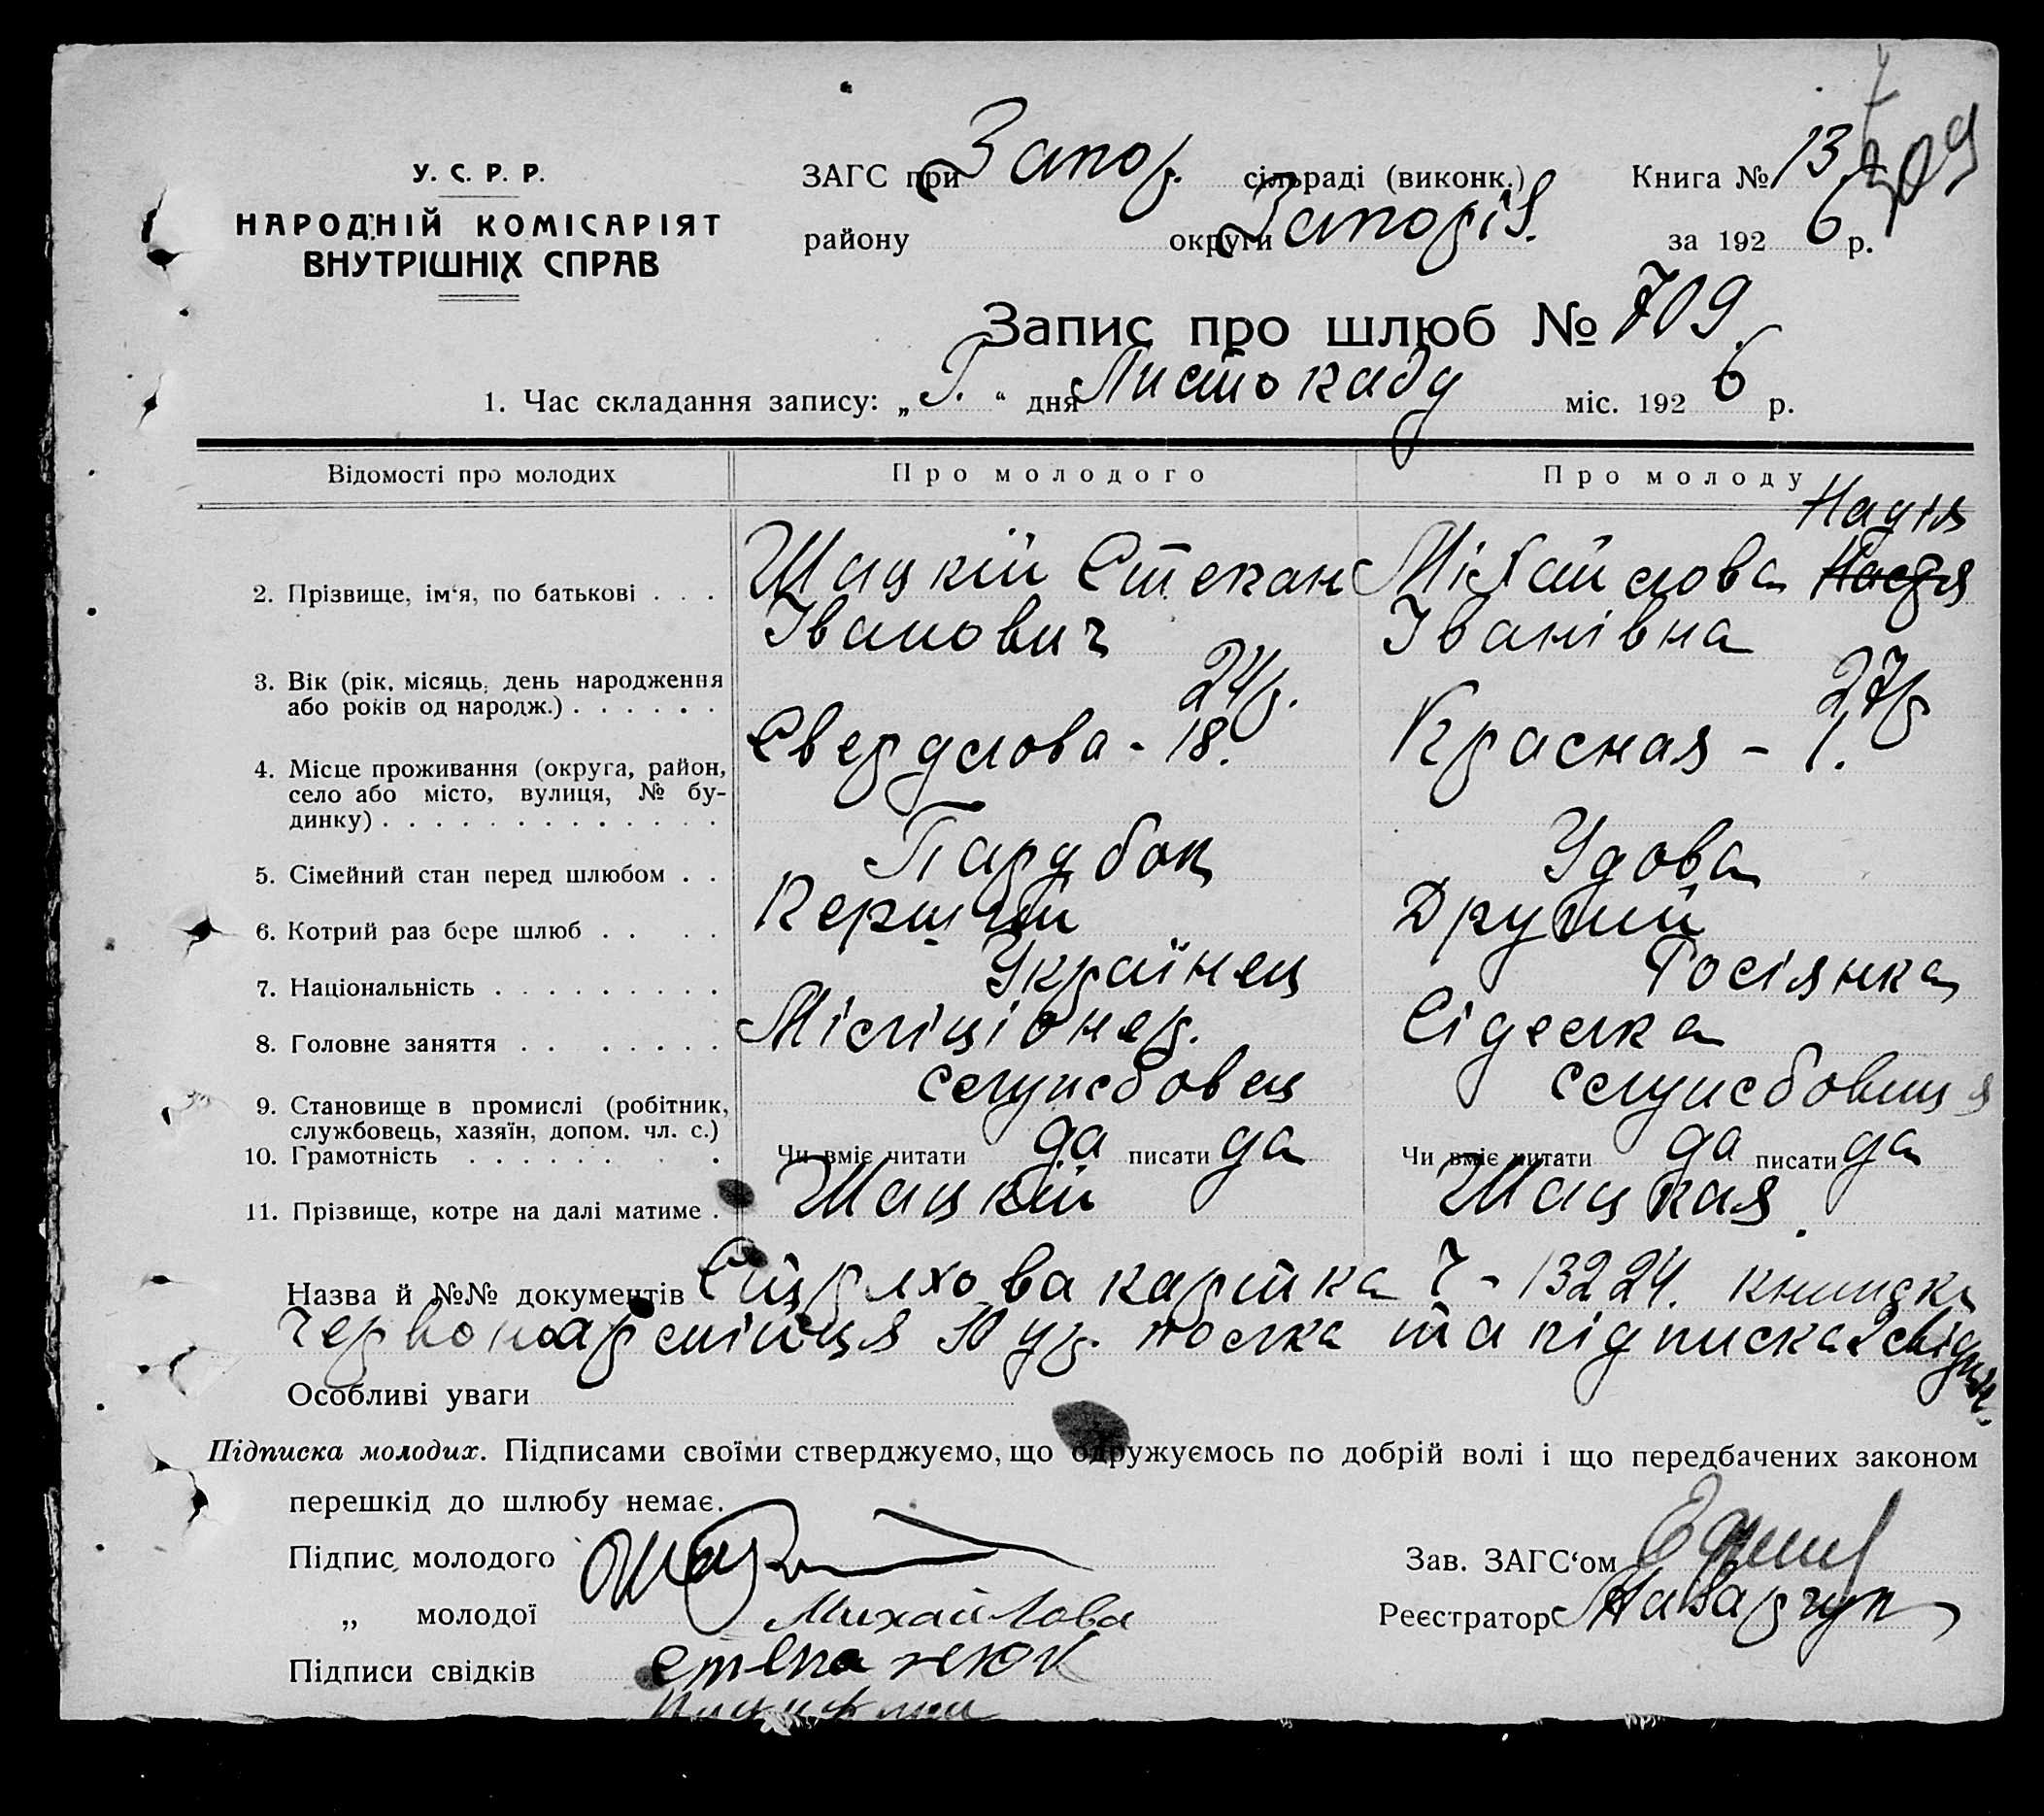 У. С. Р. Р.
НАРОДНІЙ КОМІСАРІЯТ
ВНУТРІШНІХ СПРАВ
ЗАГС при Запор. сільраді (виконк.) Книга № 13
709
району округи Запоріз. за 1926 р.
Запис про шлюб № 709.
1. Час складання запису: „ “ дня Листокаду міс. 1926 р.
Відомості про молодих Про молодого Про молоду
Надія
2. Прізвище, ім‘я, по батькові . . . Шацкій Степан Міхайлова Настя
Іванович Іванівна
3. Вік (рік, місяць, день народження 24 р. 27 р.
або років од народж.) . . . . . .
4. Місце проживання (округа, район, Свердлова - 18. Красная - 1.
село або місто, вулиця, № бу-
динку) . . . . . . . . . . . . .
5. Сімейний стан перед шлюбом . . Парубок Удова
6. Котрий раз бере шлюб . . . . Перший Другий
7. Національність . . . . . . . . . Українец Росіянка
8. Головне заняття . . . . . . . . Міліціонер. Сіделка
9. Становище в промислі (робітник, службовец службовиця
службовець, хазяїн, допом. чл. с.)
10. Грамотність . . . . . . . . Чи вміє читати да писати да Чи вміє читати да писати да
11. Прізвище, котре на далі матиме . Шацкій Шацкая.
Назва й №№ документів Стряхова картка Ч - 13224. книжка
Червоноармійця 10 полка та підписка 2 свідк.
Особливі уваги
Підписка молодих. Підписами своїми стверджуємо, що одружуємось по добрій волі і що передбачених законом
перешкід до шлюбу немає.
Підпис молодого Зав. ЗАГС‘ом
„ молодої Михайлова Реєстратор
Підписи свідків Степанюк